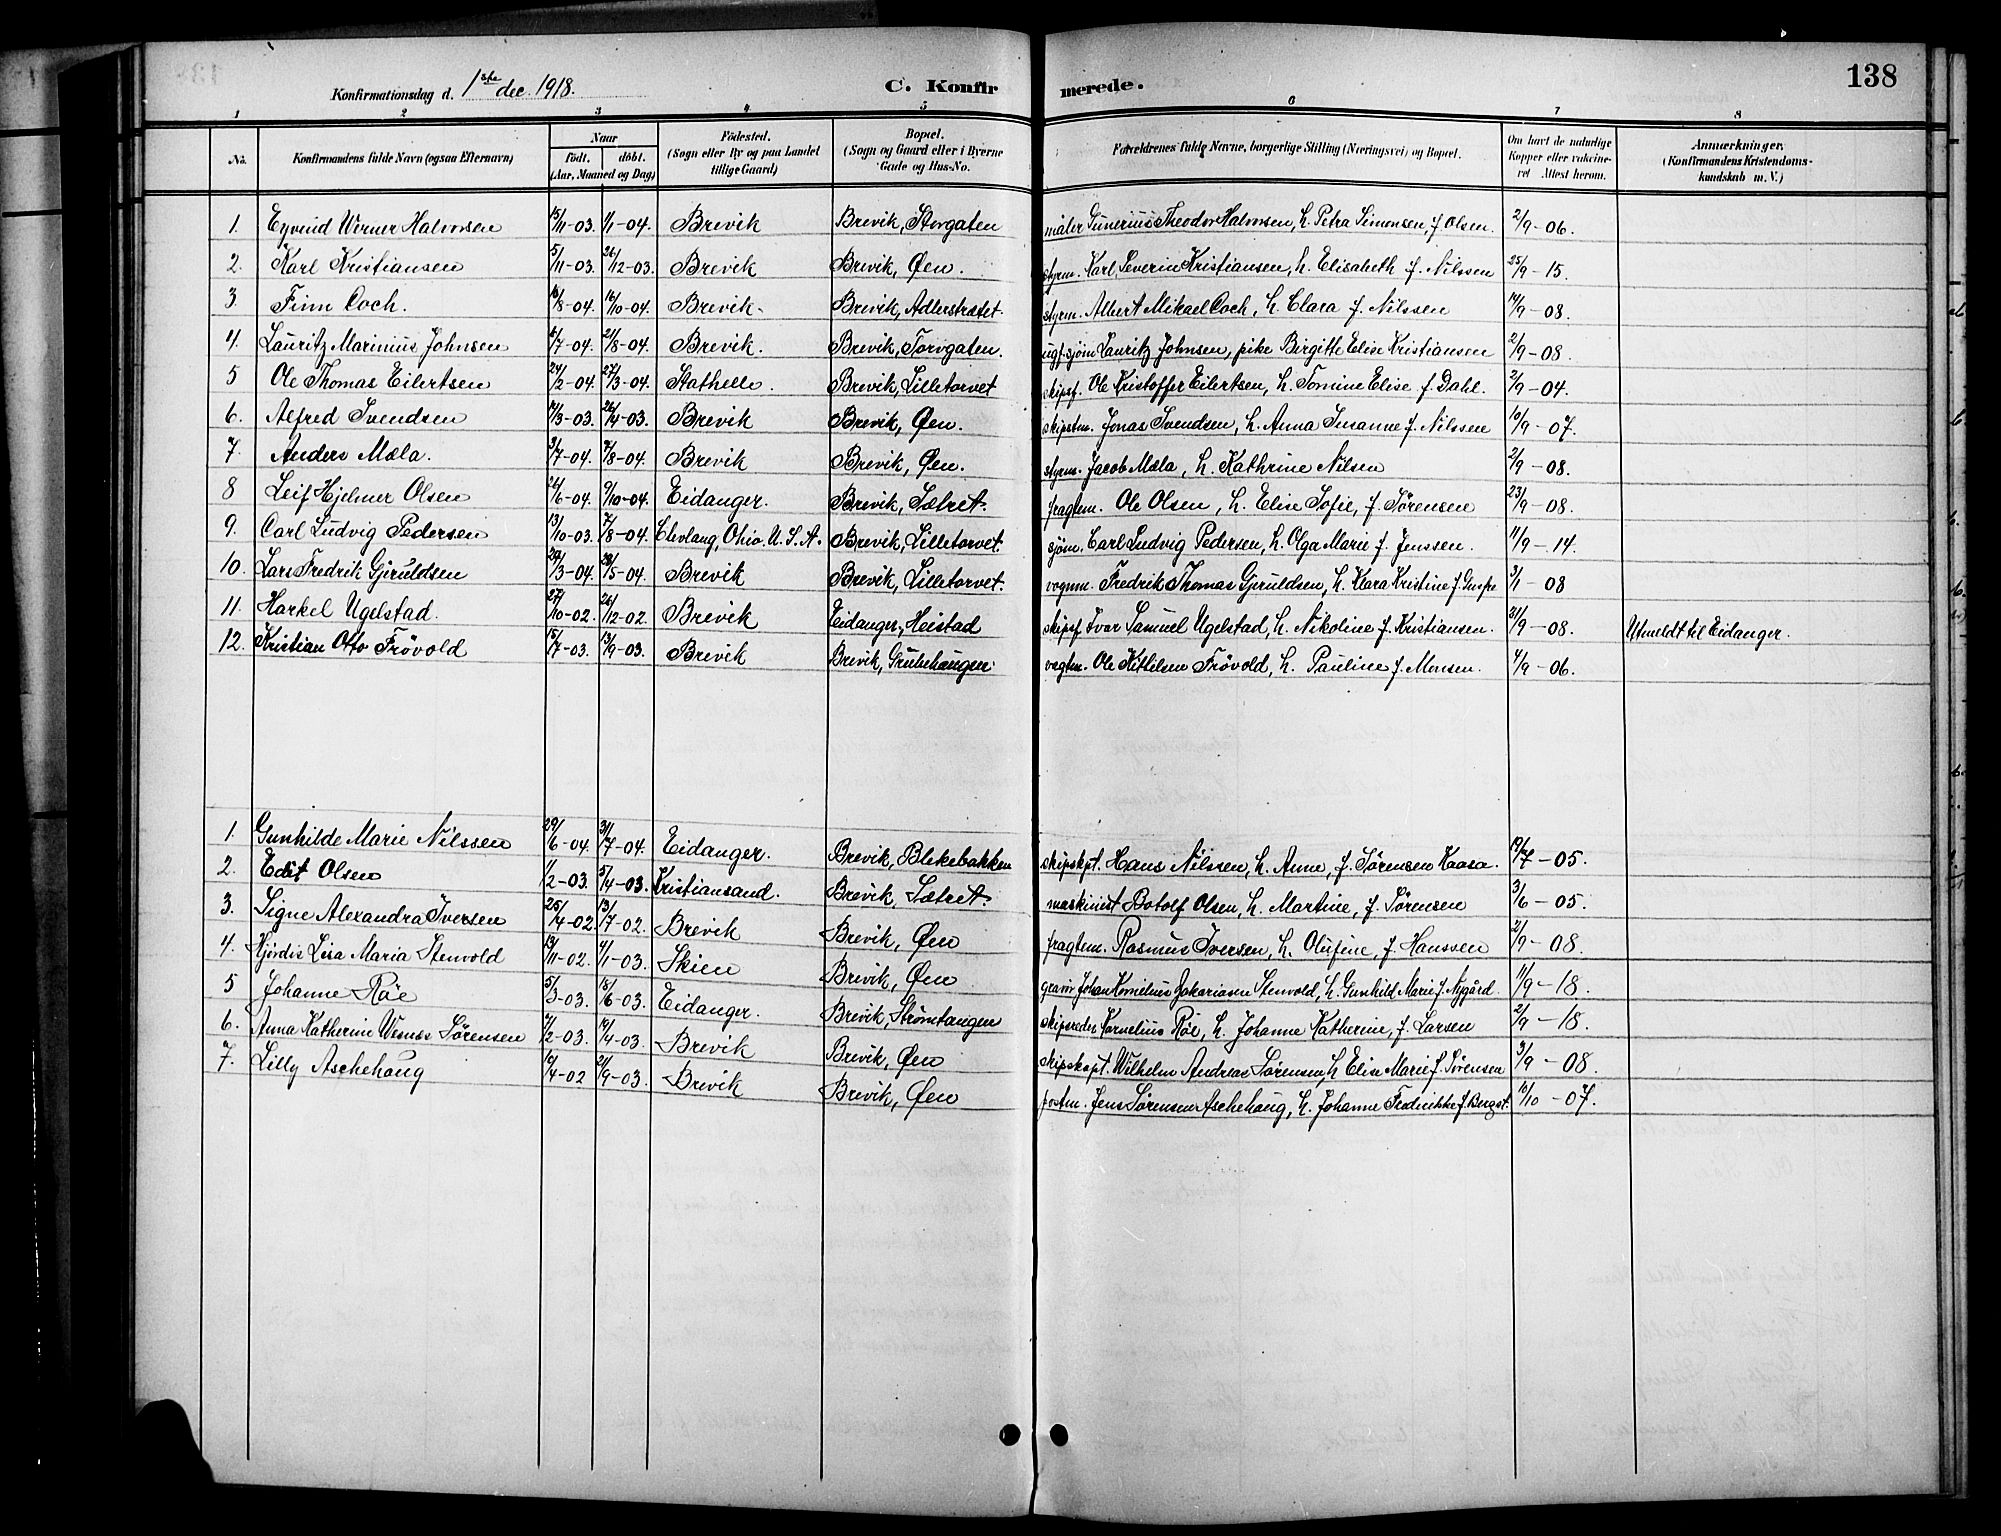 138
Konfirmationsdag d. 1ste dec. 1918.
C. Konfirmerede.
1 2 3 4 5 6 7 8
No. Konfirmandens fulde Navn (ogsaa Efternavn) Naar født. døbt. (Aar, Maaned og Dag) Fødested. (Sogn eller By og paa Landet tillige Gaard) Bopæl. (Sogn og Gaard eller i Byerne Gade og Hus-No. Forældrenes fulde Navne, borgerlige Stilling (Næringsvei) og Bopæl. Om havt de naturlige Kopper eller vaccineret Attest herom. Anmærkninger. (Konfirmandens Kristendomskundskab m. V.)
1. Eyvind Werner Halvorsen 15/11-03. 1/1-04. Brevik Brevik, Storgaten maler Gunerius Theodor Halvorsen, h. Petra Simonsen, f. Olsen. 2/9-06.
2. Karl Kristiansen 5/11-03. 26/12-03. Brevik Brevik, Øen. styrm. Karl Severin Kristiansen, h. Elisabeth f. Nilssen 25/9-15.
3. Finn Coch. /8-04. 16/10-04. Brevik. Brevik, Adlerstrætet. styrm. Albert Mikael Coch, h. Clara f. Nilssen 14/9-08.
4. Lauritz Marinius Johnsen /7-04. 21/8-04. Brevik. Brevik, Torvgaten. ugf. sjøm. Lauritz Johnsen, pike Birgitte Elise Kristiansen 2/9-08.
5 Ole Thomas Eilertsen 24/2-04. 27/3-04. Stathelle. Brevik, Lilletorvet skipsf. Ole Kristoffer Eilertsen, h. Tomine Elise f. Dahl. 2/9-04.
6. Alfred Svendsen /3-03. 26/4-03. Brevik Brevik, Øen. skipstm. Jonas Svendsen, h. Anna Susanne f. Nilssen 10/9-07.
7. Anders Mæla. 3/7-04. 7/8-04. Brevik Brevik, Øen. styrm. Jacob Mæla, h. Kathrine Nilsen 2/9-08.
8 Leif Hjelmer Olsen 26/6-04. 9/10-04. Eidanger. Brevik, Sætret. fragtm. Ole Olsen, h. Elise Sofie, f. Sørensen 23/9-08.
9. Carl Ludvig Pedersen 13/10-03. 7/8-04. Clevlang, Ohio. U. S. A. Brevik, Lilletorvet. sjøm. Carl Ludvig Pedersen, h. Olga Marie f. Jenssen. 11/9-14.
10. Lars Fredrik Gjeruldsen 29/3-04. 23/5-04. Brevik Brevik, Lilletorvet. vognm. Fredrik Thomas Gjeruldsen, h. Klara Kristine f. 3/1-08
11. Harkel Ugelstad. 27/10-02. 26/12-02. Brevik Eidanger, Heistad skipsf. Ivar Samuel Ugelstad, h. Nikoline f. Kristiansen. 31/9-08. Utmeldt til Eidanger.
12. Kristian Otto Frövold 15/7-03. 13/9-03. Brevik Brevik, Grubehaugen. vagtm. Ole Kittilsen Frövold, h. Pauline f. Monsen. 4/9-06.
1. Gunhilde Marie Nilssen 29/6-04. 31/7-04. Eidanger. Brevik, Blekebakken skipskpt. Hans Nilssen, h. Anne, f. Sørensen Kaasa. 19/7-05.
2. Edit Olsen 1/2-03. 5/4-03. Kristiansand. Brevik, Sætret. maskinist Botolf Olsen, h. Martine, f. Sørensen 3/6-05.
3. Signe Alexandra Iversen 25/4-02. 13/7-02. Brevik Brevik, Øen fragtm. Rasmus Iversen, h. Olufine, f. Hanssen 2/9-08.
4. Hjördis Lisa Maria Stenvold 19/11-02. 4/1-03. Skien Brevik, Øen gravör Johan Kornelius Zakariasen Stenvold, h. Gunhild Marie f. Nygård. 11/9-18.
5 Johanne Røe 5/3-03. 18/6-03. Eidanger. Brevik, Strömtangen skipsreder Kornelius Røe, h. Johanne Katherine, f. Larsen 2/9-18.
6. Anna Katherine Sørensen /2-03. /4-03. Brevik Brevik, Øen skipskapt. Wilhelm Andreas Sørensen, h. Elise Marie f. Sørensen 3/9-08.
7. Lilly Aschehaug /4-02 2/9-03. Brevik Brevik, Øen postm. Jens Sørensen Aschehaug, h. Johanne Fredrikke f. Bergst. /10-07.